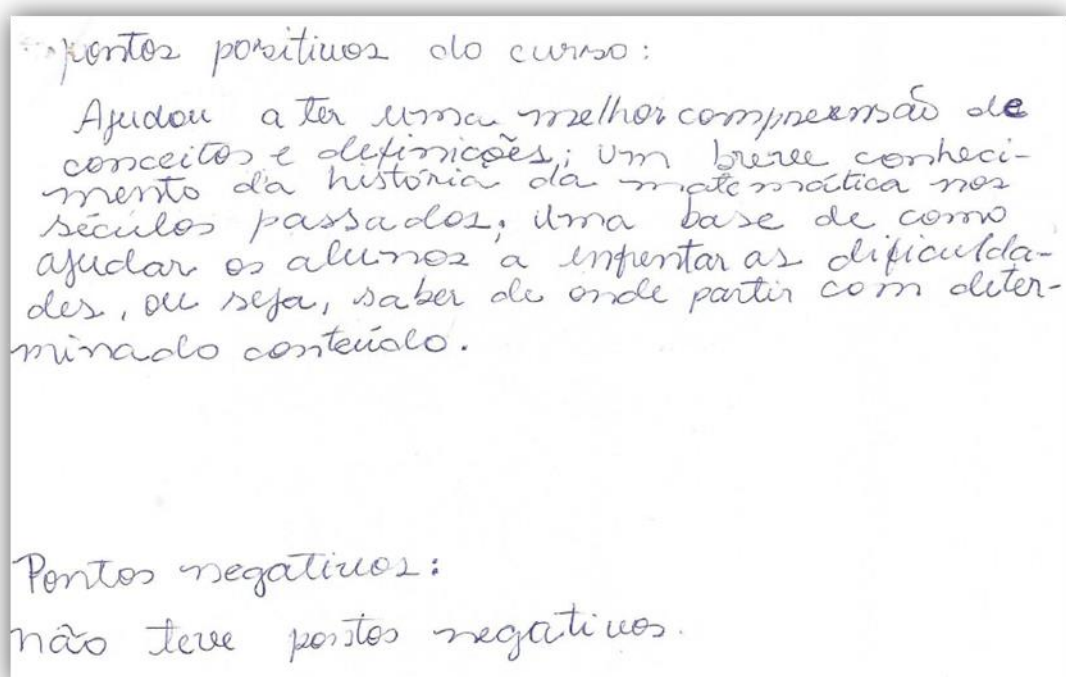 pontos positivos do curso:
Ajudou a ter uma melhor compreensão de
conceitos e definições; um breve conheci-
mento da história da matemática nos
séculos passados; uma base de como
ajudar os alunos a enfrentar as dificulda-
des, ou seja, saber de onde partir com deter-
minado conteúdo.
Pontos negativos:
não teve pontos negativos.